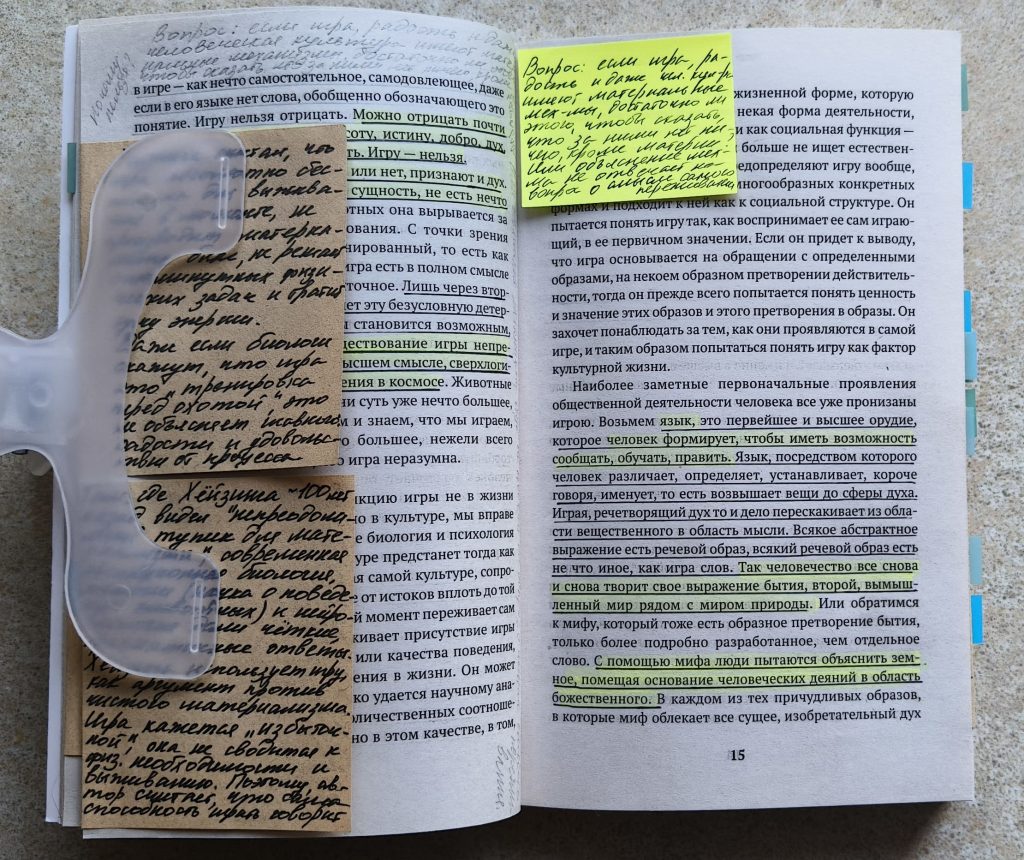 Вопрос: если игра, радость и даже
человеческая культура имеют мате-
риальные механизмы, достаточно ли этого,
чтобы сказать, что за ними нет
в игре — как нечто самостоятельное, самодовлеющее, даже
если в его языке нет слова, обобщенно обозначающего это
понятие. Игру нельзя отрицать. Можно отрицать почти
соту, истину, добро, дух,
ть. Игру — нельзя.
или нет, признают и дух.
сущность, не есть нечто
отных она вырывается за
ования. С точки зрения
нированный, то есть как
игра есть в полном смысле
точное. Лишь через втор-
ет эту безусловную детер-
ы становится возможным,
ществование игры непре-
ысшем смысле, сверхлоги-
ения в космосе. Животные
ни суть уже нечто большее,
м и знаем, что мы играем,
то большее, нежели всего
о игра неразумна.
нкцию игры не в жизни
но в культуре, мы вправе
е биология и психология
уре предстанет тогда как
ая самой культуре, сопро-
е от истоков вплоть до той
й момент переживает сам
живает присутствие игры
или качества поведения,
ения в жизни. Он может
ко удается научному ана-
оличественных соотноше-
но в этом качестве, в том,
что
бес-
выжива-
не
матерка-
не решая
минутных физи-
ких задач и тратит
энергии.
аже если биологи
скажут, что игра
это "тренировка
перед охотой" это
не объясняет главного
радости и удовольс-
твия от процесса
где Хёйзинга ~100 лет
видел "непреодоли-
тупик для мате-
" современная
биология,
наука о поведе-
) и нейро-
чёткие
ответы.
использует игру,
как аргумент против
чистого материализма.
Игра кажется "избыточ-
ной", она не сводится к
физ. необходимости и
выживанию. Поэтому ав-
тор считает, что сама
способность играть говорит
Вопрос: если игра, ра-
дость и даже чел. культура
имеют материальные
мех-мы, достаточно ли
этого, чтобы сказать,
что за ними нет ни-
чего, кроме материи?
Или объяснение мех-
ма не отвечает на
вопрос о смысле самого
переживания
жизненной форме, которую
некая форма деятельности,
и как социальная функция —
больше не ищет естествен-
едопределяют игру вообще,
многообразных конкретных
формах и подходит к ней как к социальной структуре. Он
пытается понять игру так, как воспринимает ее сам играю-
щий, в ее первичном значении. Если он придет к выводу,
что игра основывается на обращении с определенными
образами, на некоем образном претворении действитель-
ности, тогда он прежде всего попытается понять ценность
и значение этих образов и этого претворения в образы. Он
захочет понаблюдать за тем, как они проявляются в самой
игре, и таким образом попытаться понять игру как фактор
культурной жизни.
Наиболее заметные первоначальные проявления
общественной деятельности человека все уже пронизаны
игрою. Возьмем язык, это первейшее и высшее орудие,
которое человек формирует, чтобы иметь возможность
сообщать, обучать, править. Язык, посредством которого
человек различает, определяет, устанавливает, короче
говоря, именует, то есть возвышает вещи до сферы духа.
Играя, речетворящий дух то и дело перескакивает из обла-
сти вещественного в область мысли. Всякое абстрактное
выражение есть речевой образ, всякий речевой образ есть
не что иное, как игра слов. Так человечество все снова
и снова творит свое выражение бытия, второй, вымыш-
ленный мир рядом с миром природы. Или обратимся
к мифу, который тоже есть образное претворение бытия,
только более подробно разработанное, чем отдельное
слово. С помощью мифа люди пытаются объяснить зем-
ное, помещая основание человеческих деяний в область
божественного. В каждом из тех причудливых образов,
в которые миф облекает все сущее, изобретательный дух
15